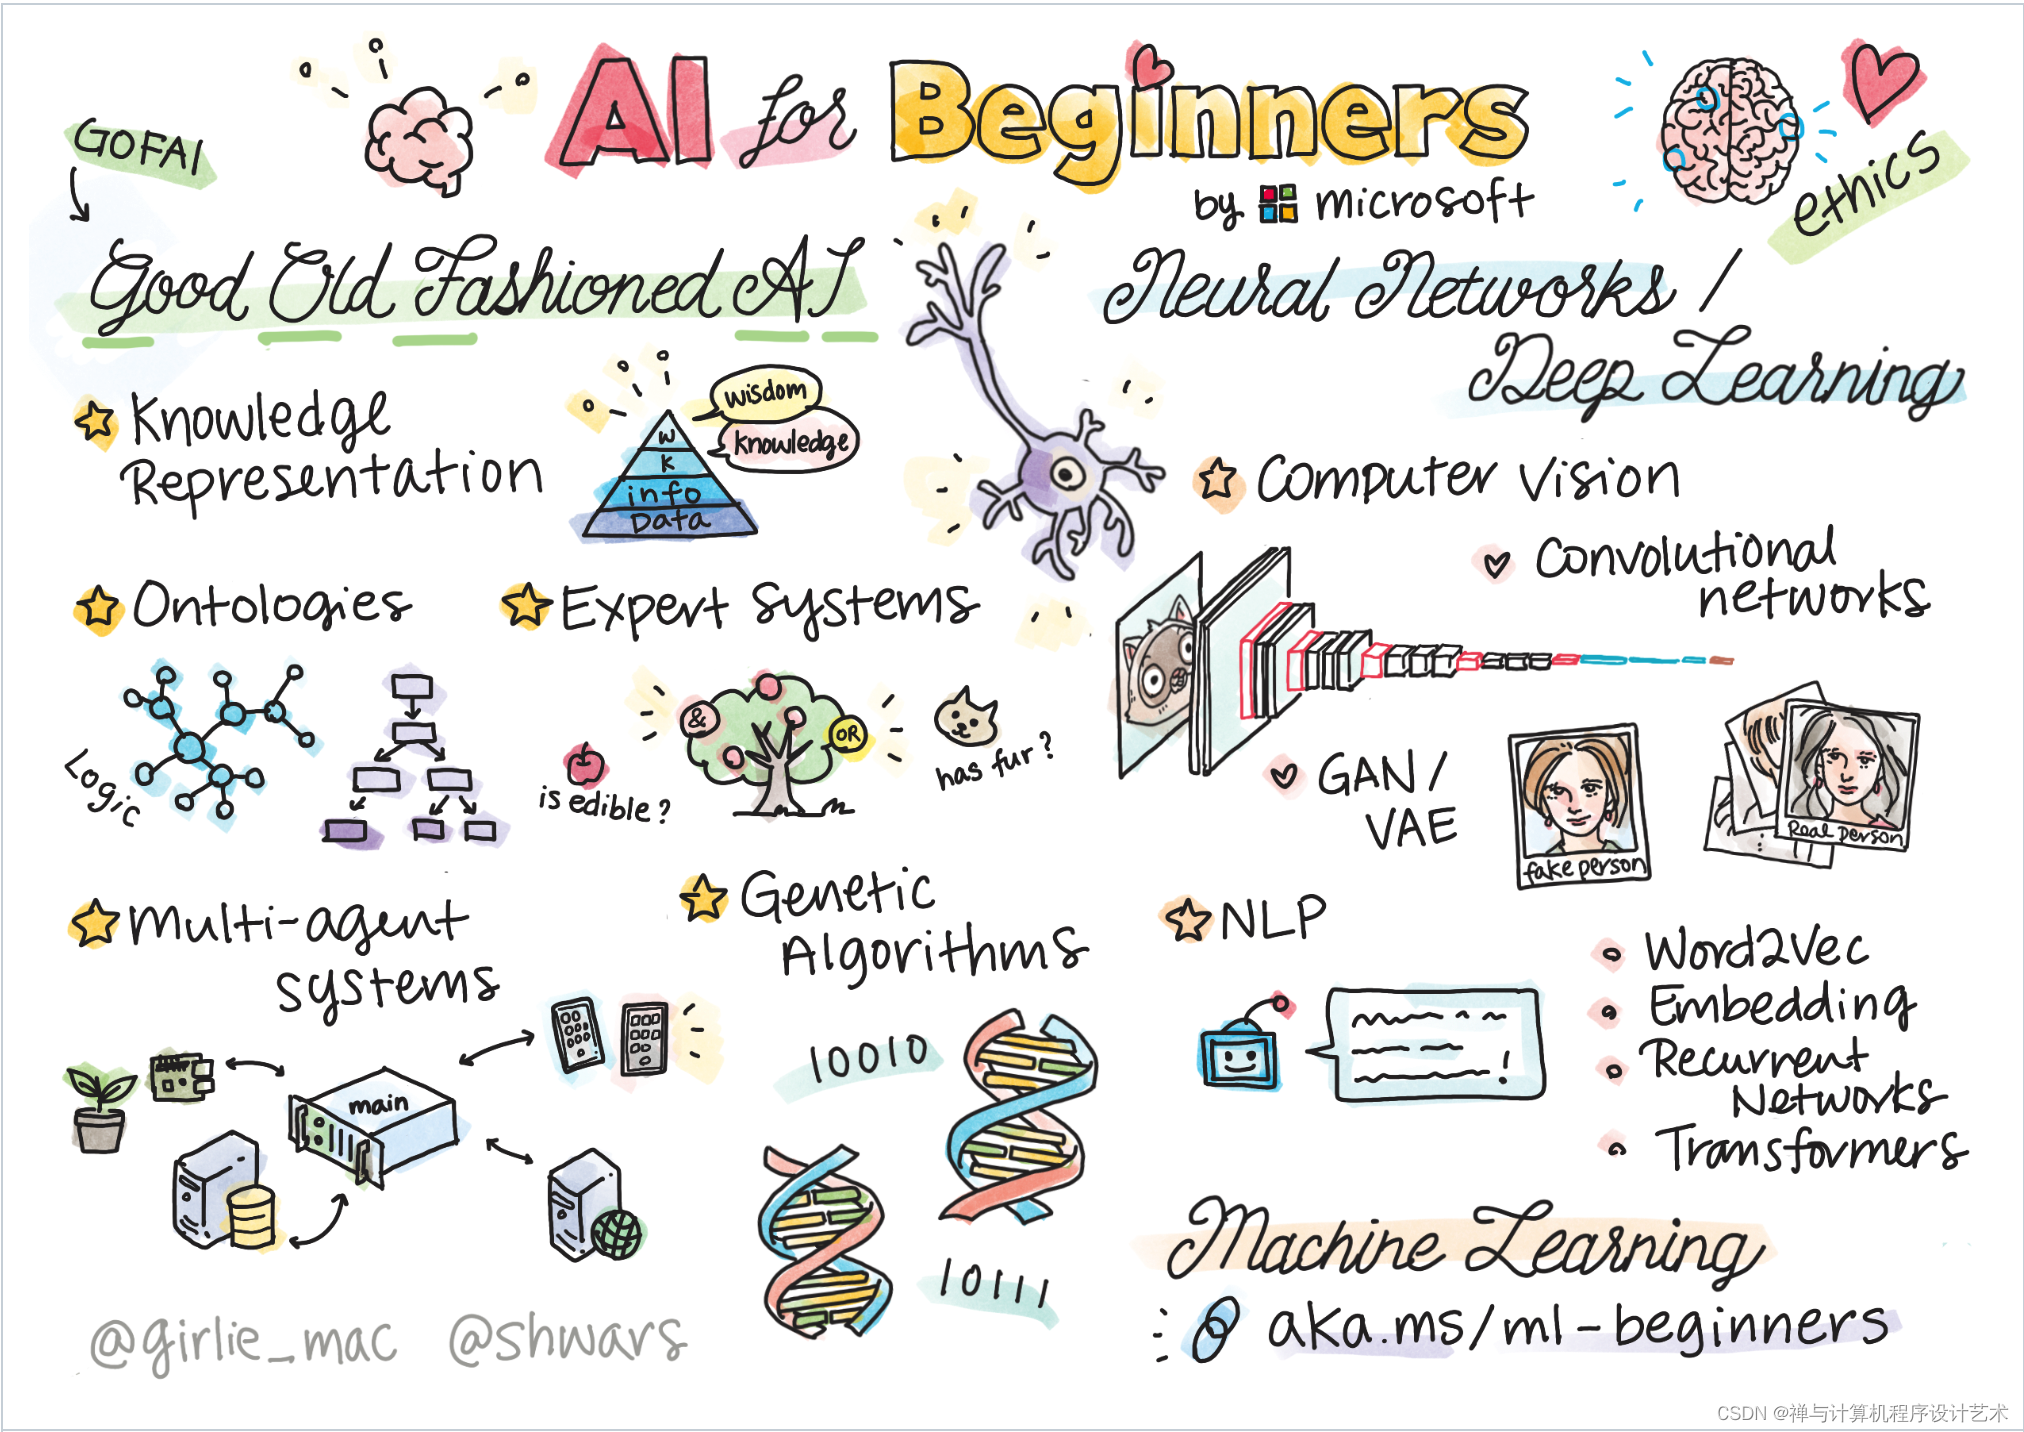 AI for Beginners
by microsoft
GOFAI
Good Old Fashioned AI
Knowledge
Representation
wisdom
knowledge
W
K
info
Data
Ontologies
Logic
Expert systems
&
OR
is edible?
has fur?
Multi-agent
systems
main
Genetic
Algorithms
10010
10111
@girlie_mac @shwars
ethics
Neural Networks /
Deep Learning
Computer Vision
Convolutional
networks
GAN/
VAE
fake person
Real person
NLP
!
Word2Vec
Embedding
Recurrent
Networks
Transformers
Machine Learning
aka.ms/ml-beginners
CSDN @禅与计算机程序设计艺术